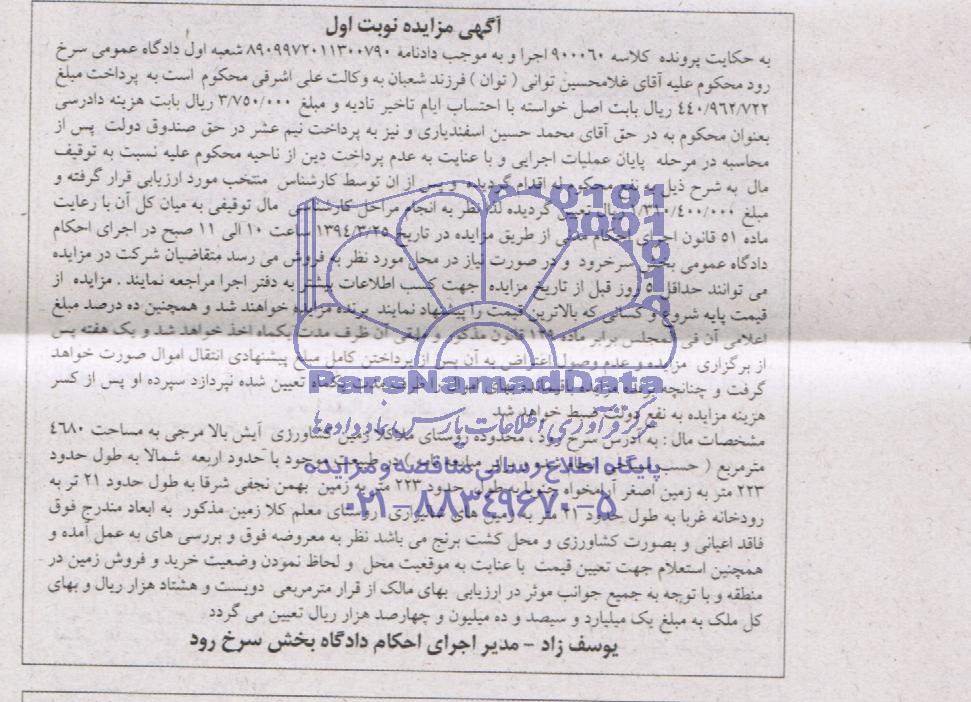 آگهی مزایده نوبت اول
به حکایت پرونده کلاسه ۹۰۰۰۶۰ اجرا و به موجب دادنامه ۸۹۰۹۹۷۲۰۱۱۳۰۰۷۹۰ شعبه اول دادگاه عمومی سرخ
رود محکوم علیه آقای غلامحسین توانی ( توان ) فرزند شعبان به وکالت علی اشرفی محکوم است به پرداخت مبلغ
۴۴۰/۹۶۲/۷۲۲ ریال بابت اصل خواسته با احتساب ایام تاخیر تادیه و مبلغ ۳/۷۵۰/۰۰۰ ریال بابت هزینه دادرسی
بعنوان محکوم به در حق آقای محمد حسین اسفندیاری و نیز به پرداخت نیم عشر در حق صندوق دولت پس از
محاسبه در مرحله پایان عملیات اجرایی و با عنایت به عدم پرداخت دین از ناحیه محکوم علیه نسبت به توقیف
مال به شرح ذیل به نفع محکوم له اقدام گردیده و پس از ان توسط کارشناس منتخب مورد ارزیابی قرار گرفته و
مبلغ ۱/۳۱۰/۴۰۰/۰۰۰ ریال تعیین گردیده لذا نظر به انجام مراحل کارشناسی مال توقیفی به میان کل آن با رعایت
ماده ۵۱ قانون اجرای احکام مدنی از طریق مزایده در تاریخ ۱۳۹۴/۳/۲۵ ساعت ۱۰ الی ۱۱ صبح در اجرای احکام
دادگاه عمومی بخش سرخرود و در صورت نیاز در محل مورد نظر به فروش می رسد متقاضیان شرکت در مزایده
می توانند حداقل ۵ روز قبل از تاریخ مزایده جهت کسب اطلاعات بیشتر به دفتر اجرا مراجعه نمایند . مزایده از
قیمت پایه شروع و کسانی که بالاترین قیمت را پیشنهاد نمایند برنده مزایده خواهند شد و همچنین ده درصد مبلغ
اعلامی آن فی المجلس برابر ماده ۱۲۹ قانون مذکور و مابقی آن ظرف مدت یکماه اخذ خواهد شد و یک هفته پس
از برگزاری مزایده و عدم وصول اعتراض به آن پس از پرداختن کامل مبلغ پیشنهادی انتقال اموال صورت خواهد
گرفت و چنانچه برنده مزایده یکماه تعیین شده نپردازد سپرده او پس از کسر
هزینه مزایده به نفع دولت ضبط خواهد شد
مشخصات مال : به آدرس سرخ رود ، محدوده روستای معلم کلا زمین کشاورزی آیش بالا مرجی به مساحت ۴۶۸۰
مترمربع ( حسب در طبیعت موجود با حدود اربعه شمالا به طول حدود
۲۲۳ متر به زمین اصغر آرامخواه جنوبا به طول حدود ۲۲۳ متر به زمین بهمن نجفی شرقا به طول حدود ۲۱ تر به
رودخانه غربا به طول حدود ۲۱ متر به زمین های روستای معلم کلا زمین مذکور به ابعاد مندرج فوق
فاقد اعیانی و بصورت کشاورزی و محل کشت برنج می باشد نظر به معروضه فوق و بررسی های به عمل آمده و
همچنین استعلام جهت تعیین قیمت با عنایت به موقعیت محل و لحاظ نمودن وضعیت خرید و فروش زمین در
منطقه و با توجه به جمیع جوانب موثر در ارزیابی بهای مالک از قرار مترمربعی دویست و هشتاد هزار ریال و بهای
کل ملک به مبلغ یک میلیارد و سیصد و ده میلیون و چهارصد هزار ریال تعیین می گردد
یوسف زاد - مدیر اجرای احکام دادگاه بخش سرخ رود
ParsNamadData
مرکز فرآوری اطلاعات پارس نماد داده ها
پایگاه اطلاع رسانی مناقصه و مزایده
۰۲۱-۸۸۳۴۹۶۷۰-۵